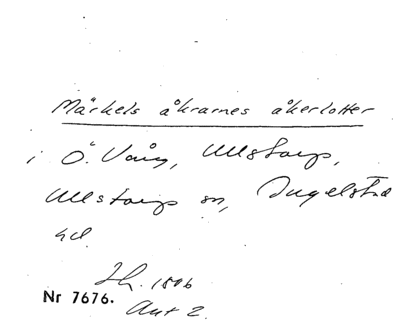 Märkels åkrarnes åkerlotter
i Ö. Vång, Ullstorp,
Ullstorps sn, Ingelstad
hd.
Lh. 1806
Nr 7676.
Akt 2.